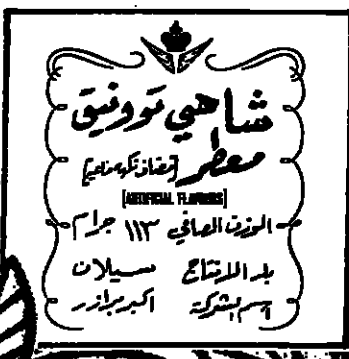 شاهي توفيق
معطر [مضاف نكهه صناعيه]
[ARTIFICIAL FLAVOURS]
الوزن الصافي ١١٣ جرام
بلد الانتاج سيلان
اسم الشركة اكبر برازرز